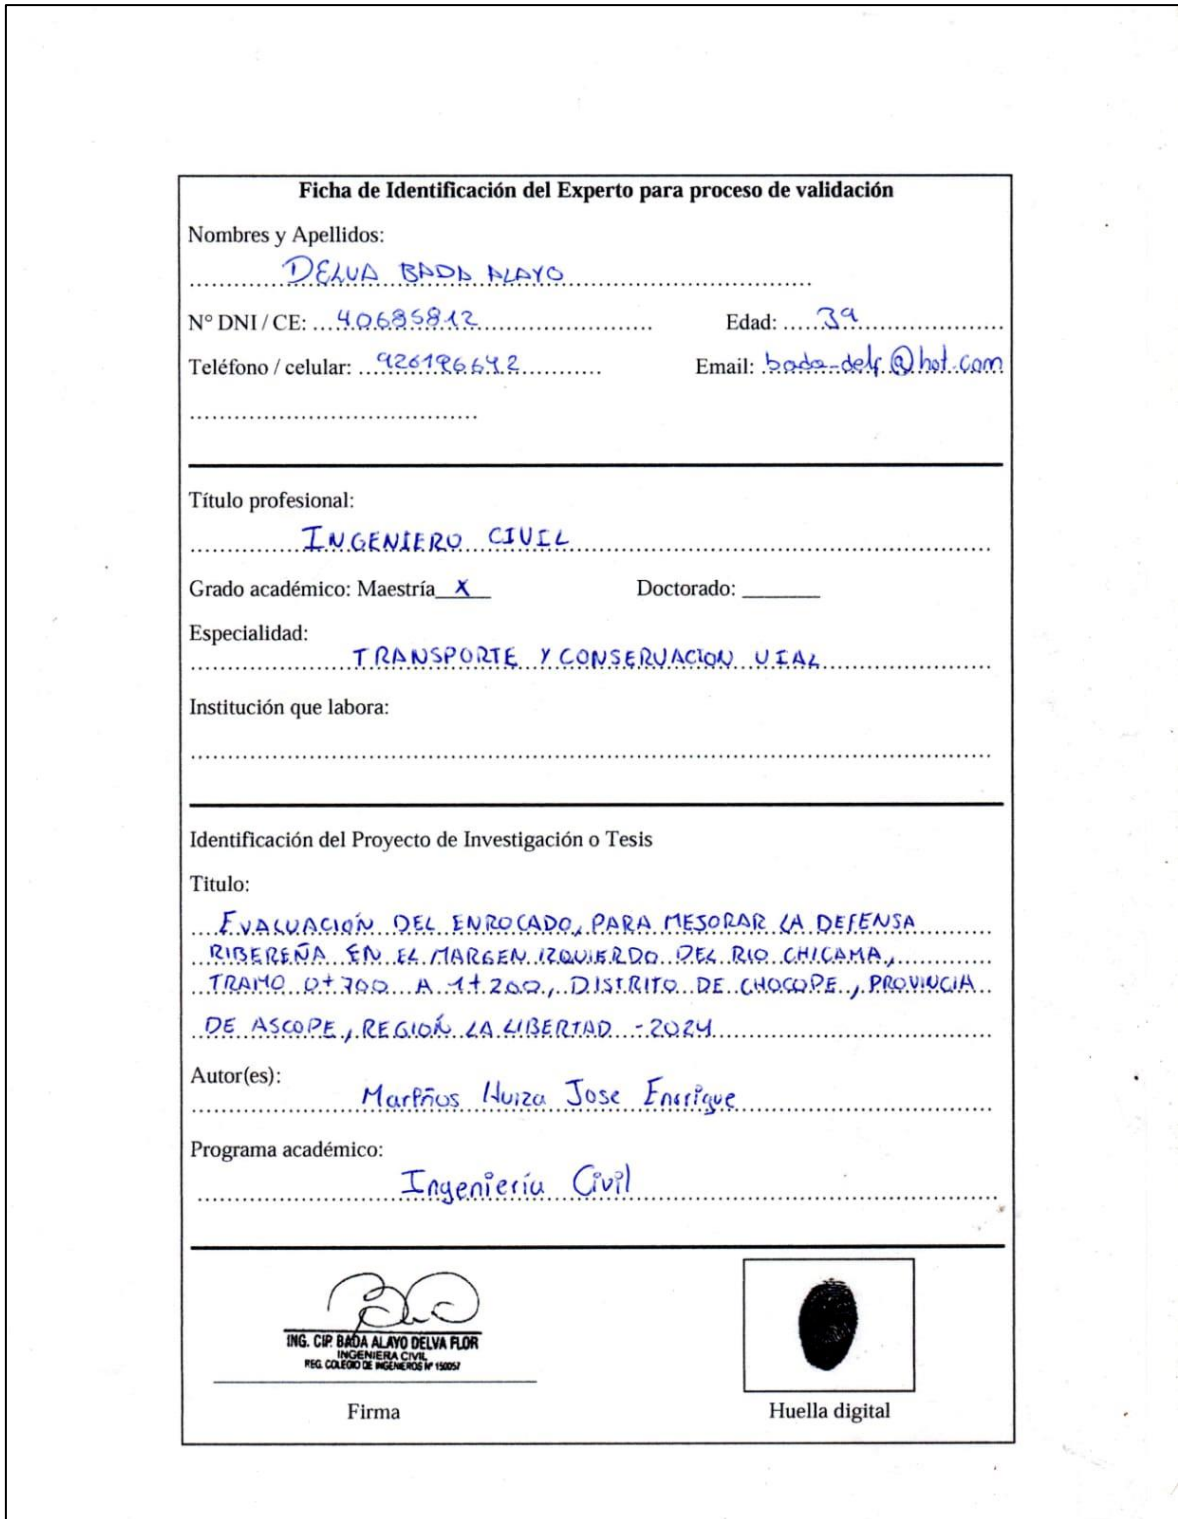 Ficha de Identificación del Experto para proceso de validación
Nombres y Apellidos:
DELVA BADA ALAYO
N° DNI / CE: 40685812 Edad: 39
Teléfono / celular: 926196642 Email: bada-delf@hot.com
Título profesional:
INGENIERO CIVIL
Grado académico: Maestría X Doctorado:
Especialidad:
TRANSPORTE Y CONSERVACION VIAL
Institución que labora:
Identificación del Proyecto de Investigación o Tesis
Titulo:
EVALUACIÓN DEL ENROCADO, PARA MEJORAR LA DEFENSA
RIBEREÑA EN EL MARGEN IZQUIERDO DEL RIO CHICAMA,
TRAMO 0+700 A 1+200, DISTRITO DE CHOCOPE, PROVINCIA
DE ASCOPE, REGIÓN LA LIBERTAD - 2024
Autor(es):
Mariños Huiza Jose Enrrique
Programa académico:
Ingeniería Civil
ING. CIP. BADA ALAYO DELVA FLOR
INGENIERA CIVIL
REG. COLEGIO DE INGENIEROS N° 150057
Firma Huella digital